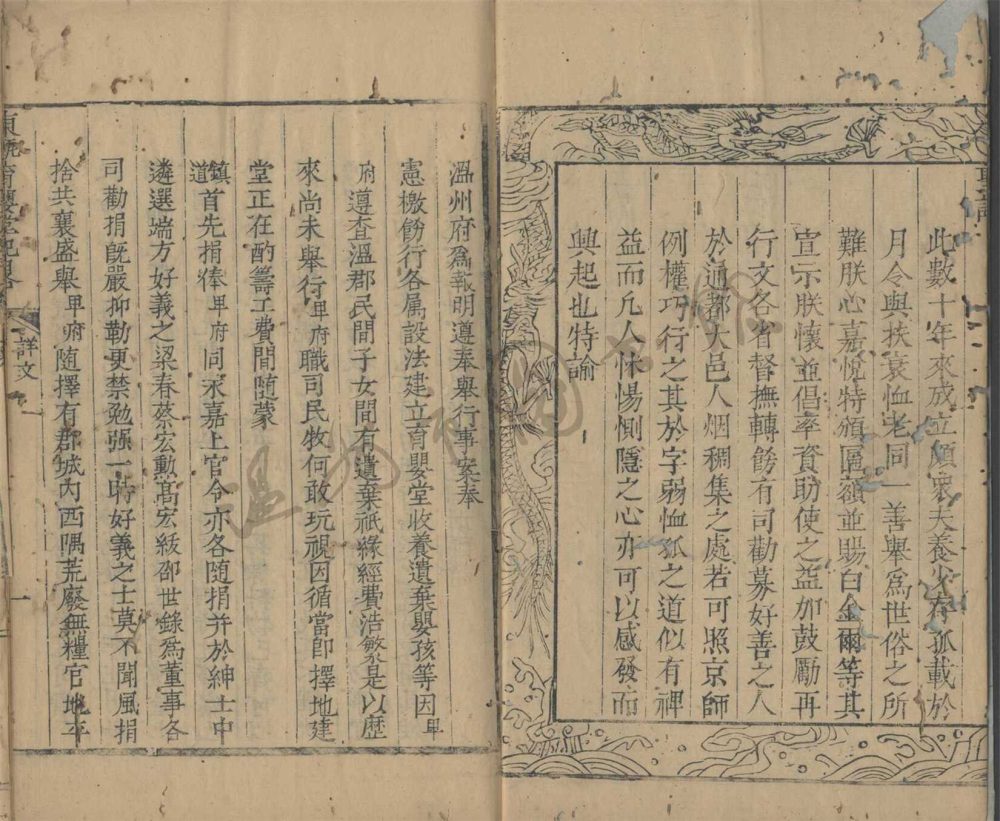 此數十年來成立頗衆夫養少存孤載於
月令與扶衰恤老同一善舉爲世俗之所
難朕心嘉悅特頒匾額並賜白金爾等其
宣示朕懷並倡率資助使之益加鼓勵再
行文各省督撫轉飭有司勸募好善之人
於通都大邑人烟稠集之處若可照京師
例權巧行之其於字弱恤孤之道似有裨
益而凡人怵惕惻隱之心亦可以感發而
興起也特諭
溫州府爲報明遵奉舉行事案奉
憲檄飭行各屬設法建立育嬰堂收養遺棄嬰孩等因卑
府遵查溫郡民間子女間有遺棄祇緣經費浩繁是以歷
來尚未舉行卑府職司民牧何敢玩視因循當卽擇地建
堂正在酌籌工費間隨蒙
鎮道首先捐俸卑府同永嘉上官令亦各隨捐并於紳士中
遴選端方好義之梁春蔡宏勳髙宏紱邵世錄爲董事各
司勸捐旣嚴抑勒更禁勉强一時好義之士莫不聞風捐
捨共襄盛舉卑府隨擇有郡城內西隅荒廢無糧官地平
育嬰堂
詳文
一